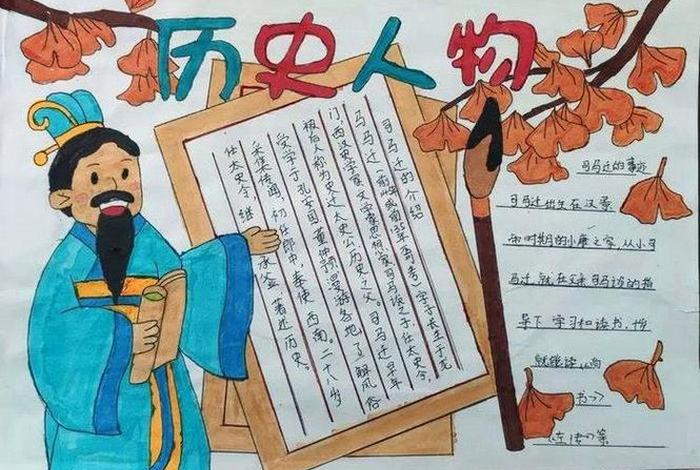 历史人物
司马迁的介绍
司马迁（前145年或前135年 字子长生于龙
门，西汉史学家文学家思想家司马谈之子，任太史令，
被后人称为史迁太史公历史之父。司马迁早年
受学于孔安国董仲舒漫游各地，了解风俗
采集传闻，初任郎中，奉使西南。二十八岁
任太史令，继承 著述历史。
司马迁的事迹
司马迁出生在汉景
帝时期的小康之家，从小司
马迁就在父亲司马谈的指
导下学习和读书，10
就能读
书>>